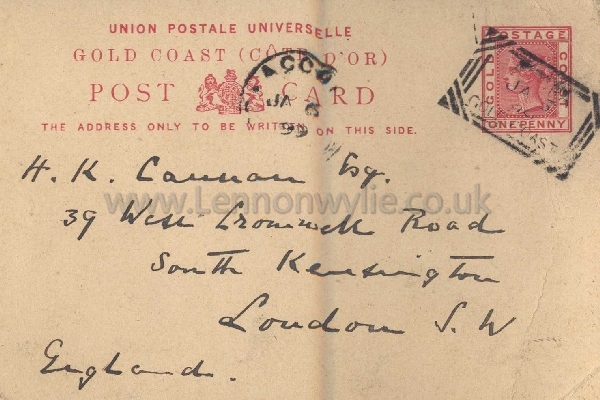 UNION POSTALE UNIVERSELLE
GOLD COAST (CÔTE D'OR)
POST CARD
THE ADDRESS ONLY TO BE WRITTEN ON THIS SIDE.
ACCRA
JA 6
99
POSTAGE
GOLD COAST
ONE PENNY
JA
H. K. Cannan Esq.
www.Lennonwylie.co.uk
39 West Cromwell Road
South Kensington
London S.W
England.